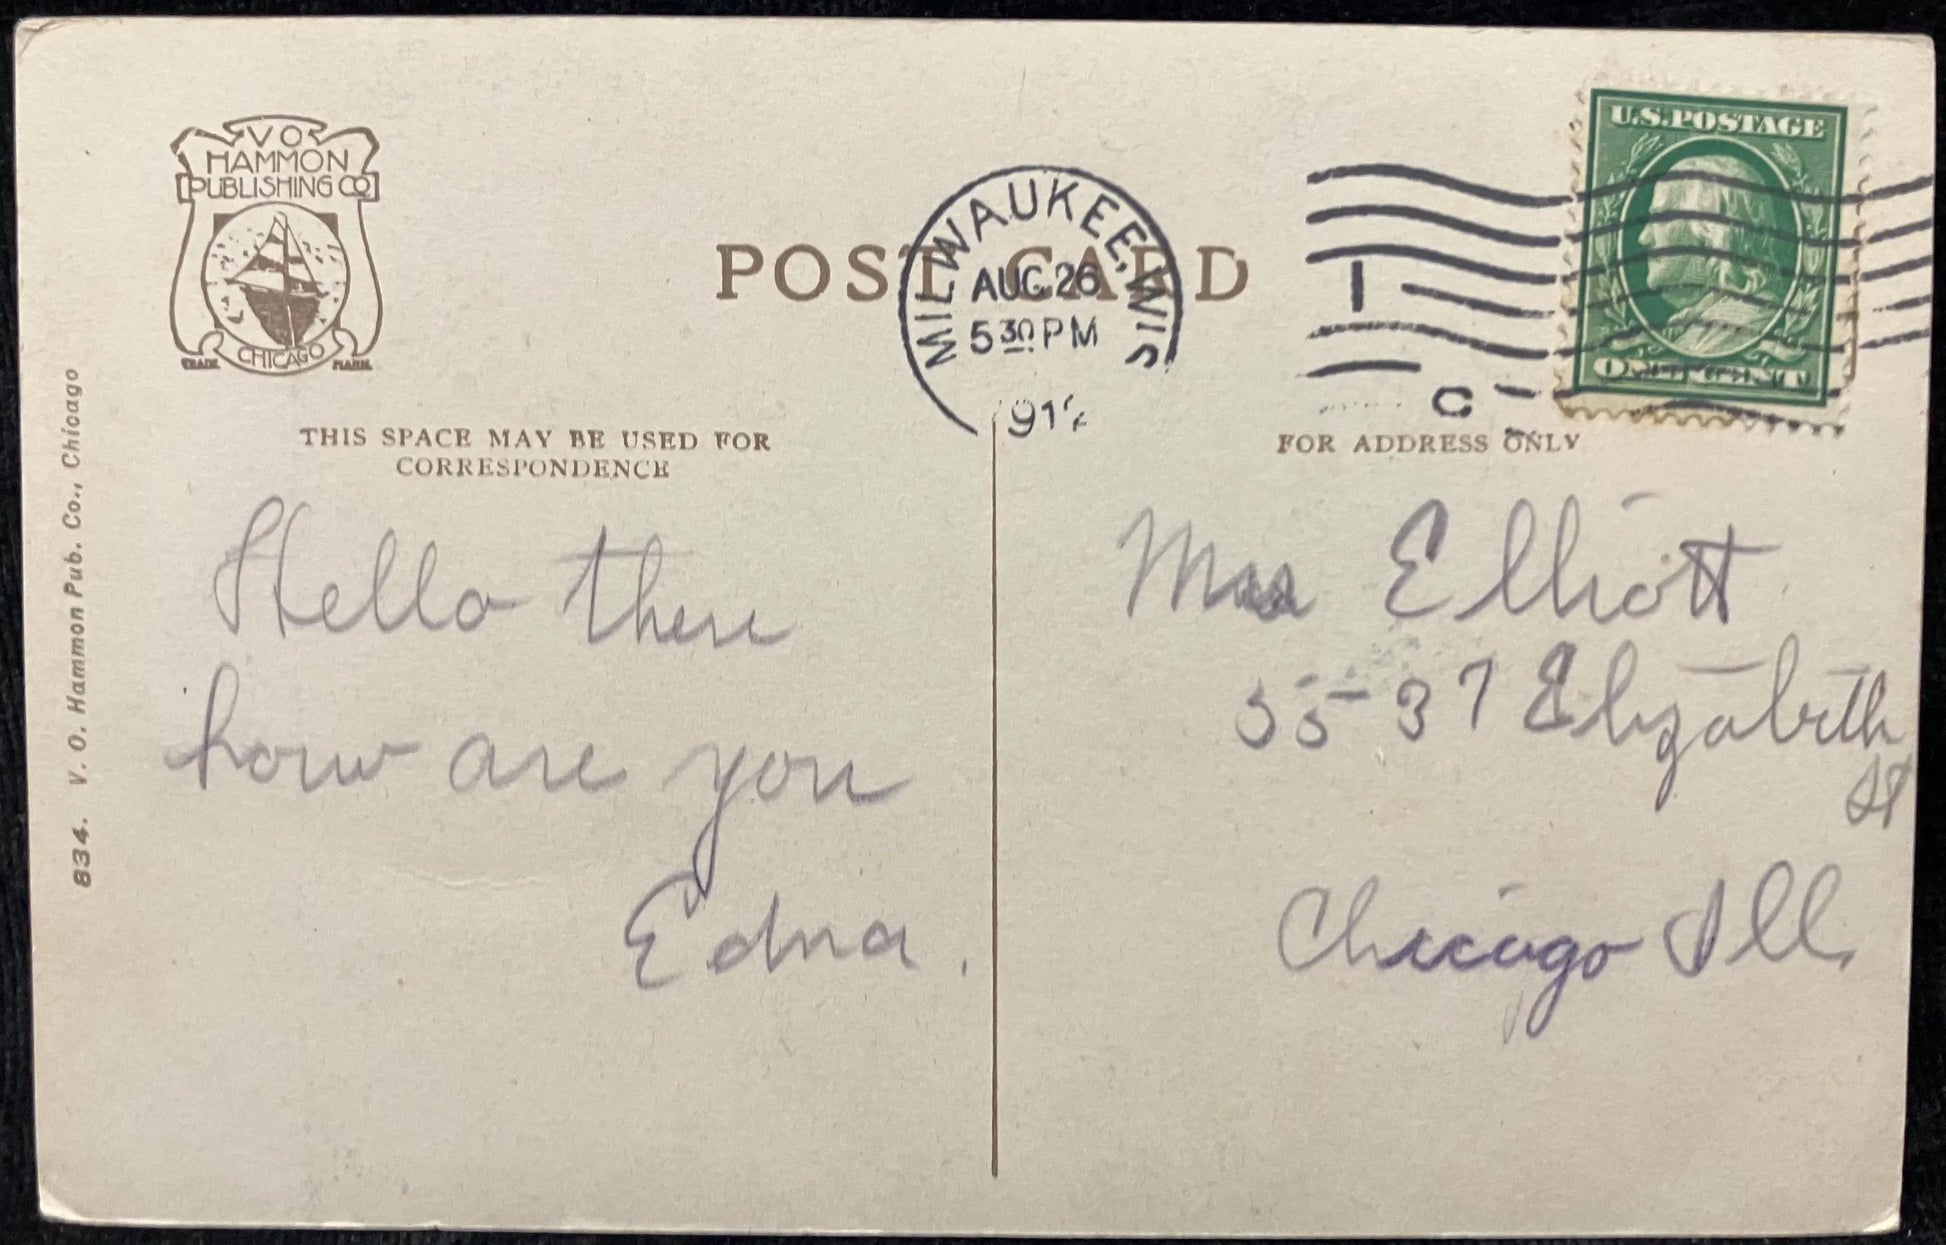 V O
HAMMON
PUBLISHING CO
CHICAGO
TRADE MARK
POST CARD
MILWAUKEE, WIS
AUG 26
5 30 PM
1
C
U.S. POSTAGE
THIS SPACE MAY BE USED FOR
CORRESPONDENCE
FOR ADDRESS ONLY
834. V. O. Hammon Pub. Co., Chicago
Hello there
how are you
Edna.
Elliott
55-37 Elizabeth
St
Chicago Ill.